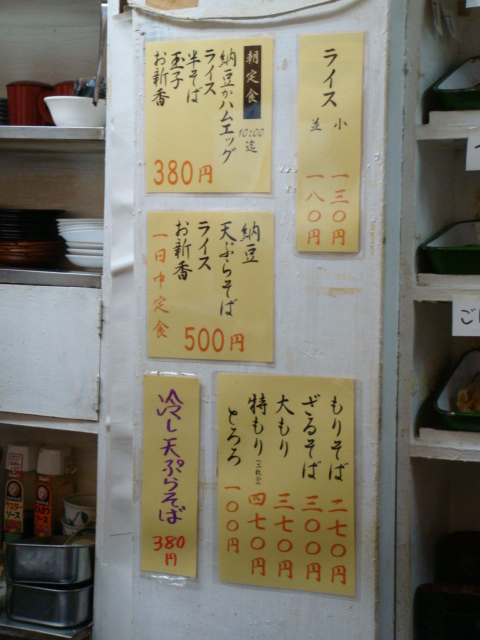 朝定食
10:00迄
納豆かハムエッグ
ライス
半そば
玉子
お新香
380円
ライス
小 一三〇円
並 一八〇円
納豆
天ぷらそば
ライス
お新香
一日中定食
500円
冷し天ぷらそば
380円
もりそば 二七〇円
ざるそば 三〇〇円
大もり 三七〇円
特もり(三枚分) 四七〇円
とろろ 一〇〇円
ソース
ごは